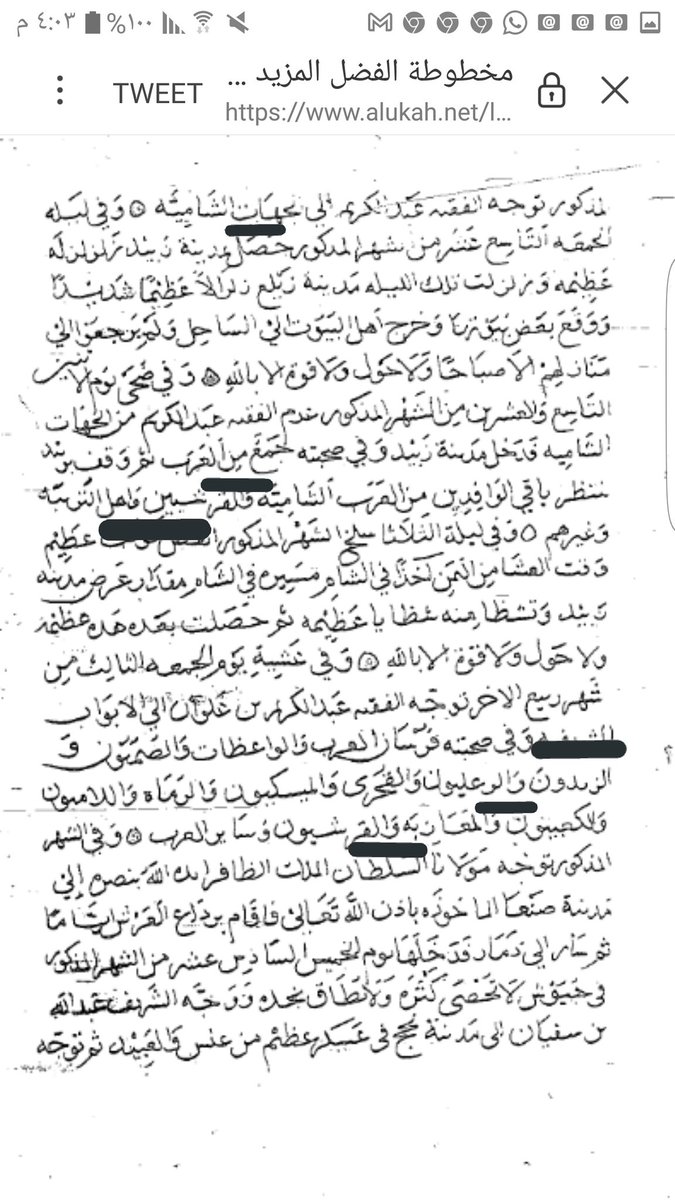 ٤:٠٣ م
١٠٠%
مخطوطة الفضل المزيد ...
TWEET
https://www.alukah.net/l...
المذكور توجه الفقيه عبد الكريم الى الجهات الشاميه وفي ليله
الجمعه التاسع عشر من شهر المذكور حصل بمدينة زبيد زلزله
عظيمه وزلزلت تلك الليله مدينة زيلع زلزالا عظيما شديدا
ووقع بعض بيوتها وخرج اهل البيوت الى الساحل ولم يرجعوا الى
منازلهم الا صباحا ولا حول ولا قوة الا بالله وفي ضحى يوم الاثنين
التاسع والعشرين من الشهر المذكور قدم الفقيه عبد الكريم من الجهات
الشاميه فدخل مدينة زبيد وفي صحبته جمع من العرب ثم وقف
ينتظر باقي الوافدين من العرب الشاميه والقرشيين واهل
وغيرهم وفي ليلة الثلاثا سلخ الشهر المذكور عظيم
وقت العشا من اليمن اخذ في الشام مسيره في الشام مقدار عرض مدينه
زبيد وتشظا منه شظايا عظيمه ثم حصلت بعده هده عظيمه
ولا حول ولا قوة الا بالله وفي عشية يوم الجمعه الثالث من
شهر ربيع الاخر توجه الفقيه عبد الكريم بن علوان الى الابواب
الشريفه وفي صحبته فرسان العرب والواعظات والصميون و
الزيديون والرعليون والفخرى والرماه واللاميون
والكعبيون والمعازبه والقرشيون وساير العرب وفي الشهر
المذكور توجه مولانا السلطان الملك الظافر ايده الله بنصره الى
مدينة صنعا الماخوذه باذن الله تعالى فاقام برداع العرش اياما
ثم سار الى ذمار فدخلها يوم الخميس السادس عشر من الشهر المذكور
في جيوش لا تحصى كثره ولا تطاق نجده ووجه الشريف عبد الله
بن سفيان الى مدينة في عسكر عظيم من عنس والعبيد ثم توجه